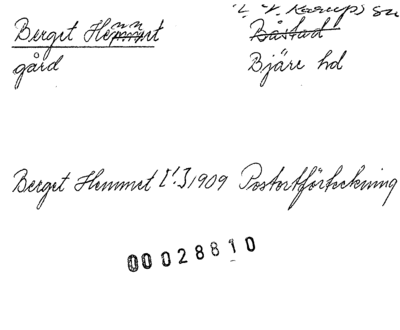 Berget Hemmet
V. Karups sn
Båstad
gård
Bjäre hd
Berget Hemmet [!] 1909 Postortförteckning
00028810